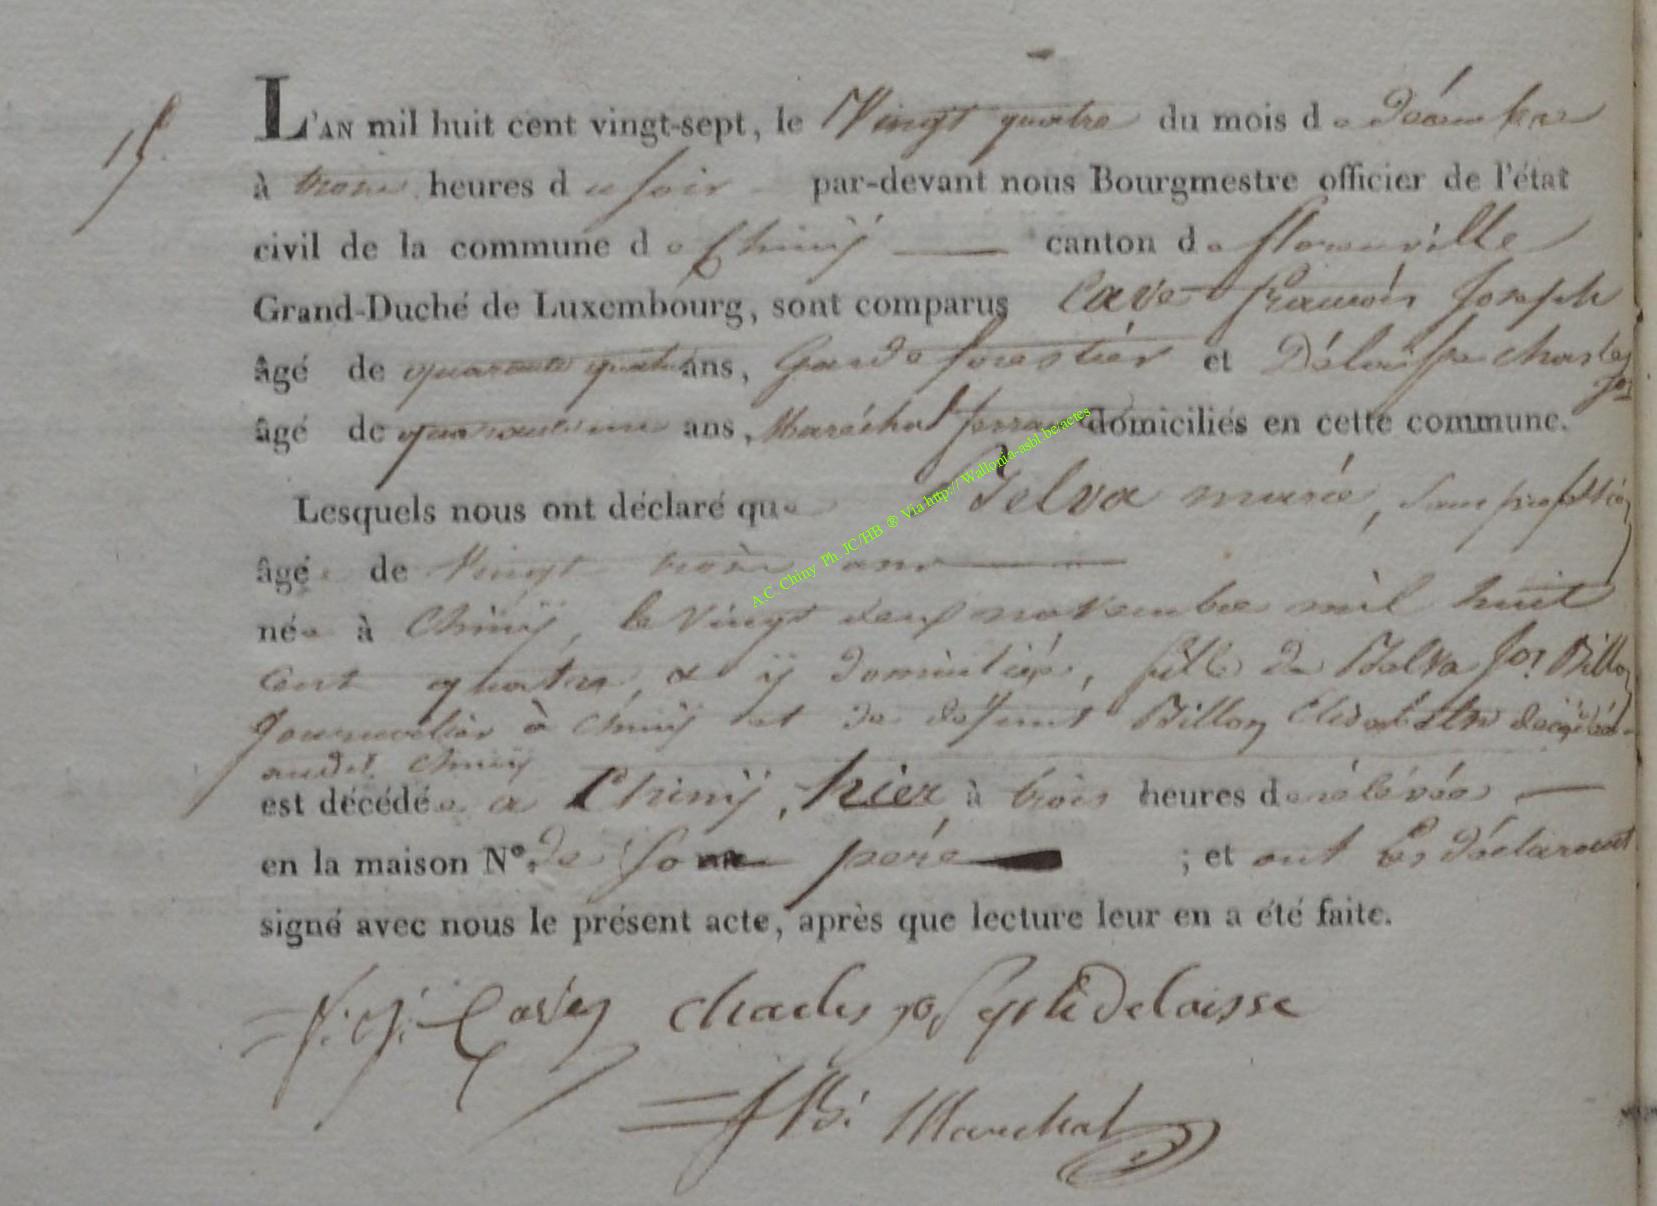 15.
L'AN mil huit cent vingt-sept, le Vingt quatre du mois de décembre
à trois heures du soir par-devant nous Bourgmestre officier de l'état
civil de la commune de Chinÿ canton de florenville
Grand-Duché de Luxembourg, sont comparus Cavé François Joseph
âgé de quarante quatre ans, Garde forestier et Délaisse charles
jos
âgé de ans, Maréchal ferra domiciliés en cette commune.
Lesquels nous ont déclaré que Jelva marie, sans profession
âgée de Vingt trois ans
née à Chinÿ, le Vingt deux novembre mil huit
Cent quatre, & ÿ domiciliée, fille de Jos.
Journalier à Chinÿ et de défunt Billon décédée
audit Chinÿ
est décédée a Chinÿ, hier à trois heures de rélévée
en la maison N°. de son pére ; et ont les déclarants
signé avec nous le présent acte, après que lecture leur en a été faite.
f. j. Cavey Charles joseph Delaisse
Marchal
A.C. Chiny Ph JC/HB ® Via http:// Wallonia-asbl.be/actes